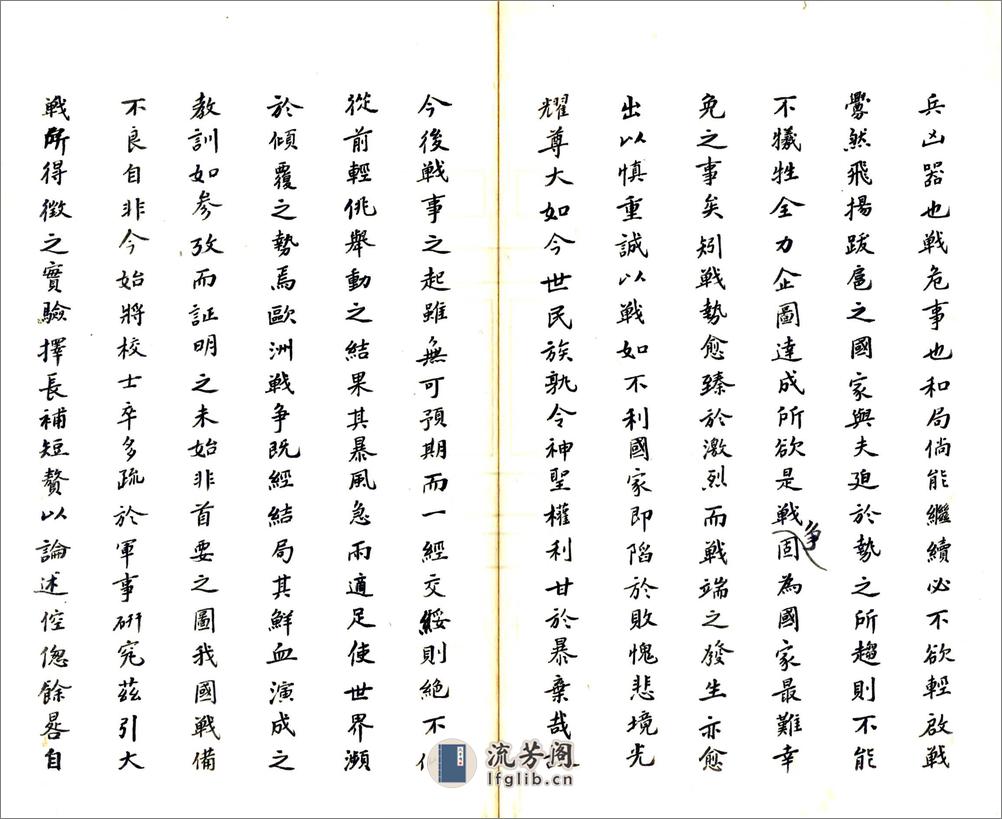 兵凶器也戦危事也和局倘能繼續必不欲輕啟戦
釁然飛揚跋扈之國家與夫廹於勢之所趨則不能
不犠牲全力企圖達成所欲是戦争固為國家最難幸
免之事矣矧戦勢愈臻於激烈而戦端之發生亦愈
出以慎重誠以戦如不利國家即陷於敗愧悲境光
耀尊大如今世民族孰令神聖權利甘於暴棄哉
今後戦事之起雖無可預期而一經交綏則絶不
從前輕佻舉動之結果其暴風急雨適足使世界瀕
於傾覆之勢焉歐洲戦争既經結局其鮮血演成之
教訓如參攷而証明之未始非首要之圖我國戦備
不良自非今始將校士卒多疏於軍事研究茲引大
戦所得徵之實驗擇長補短贅以論述倥偬餘晷自
流芳阁
lfglib.cn